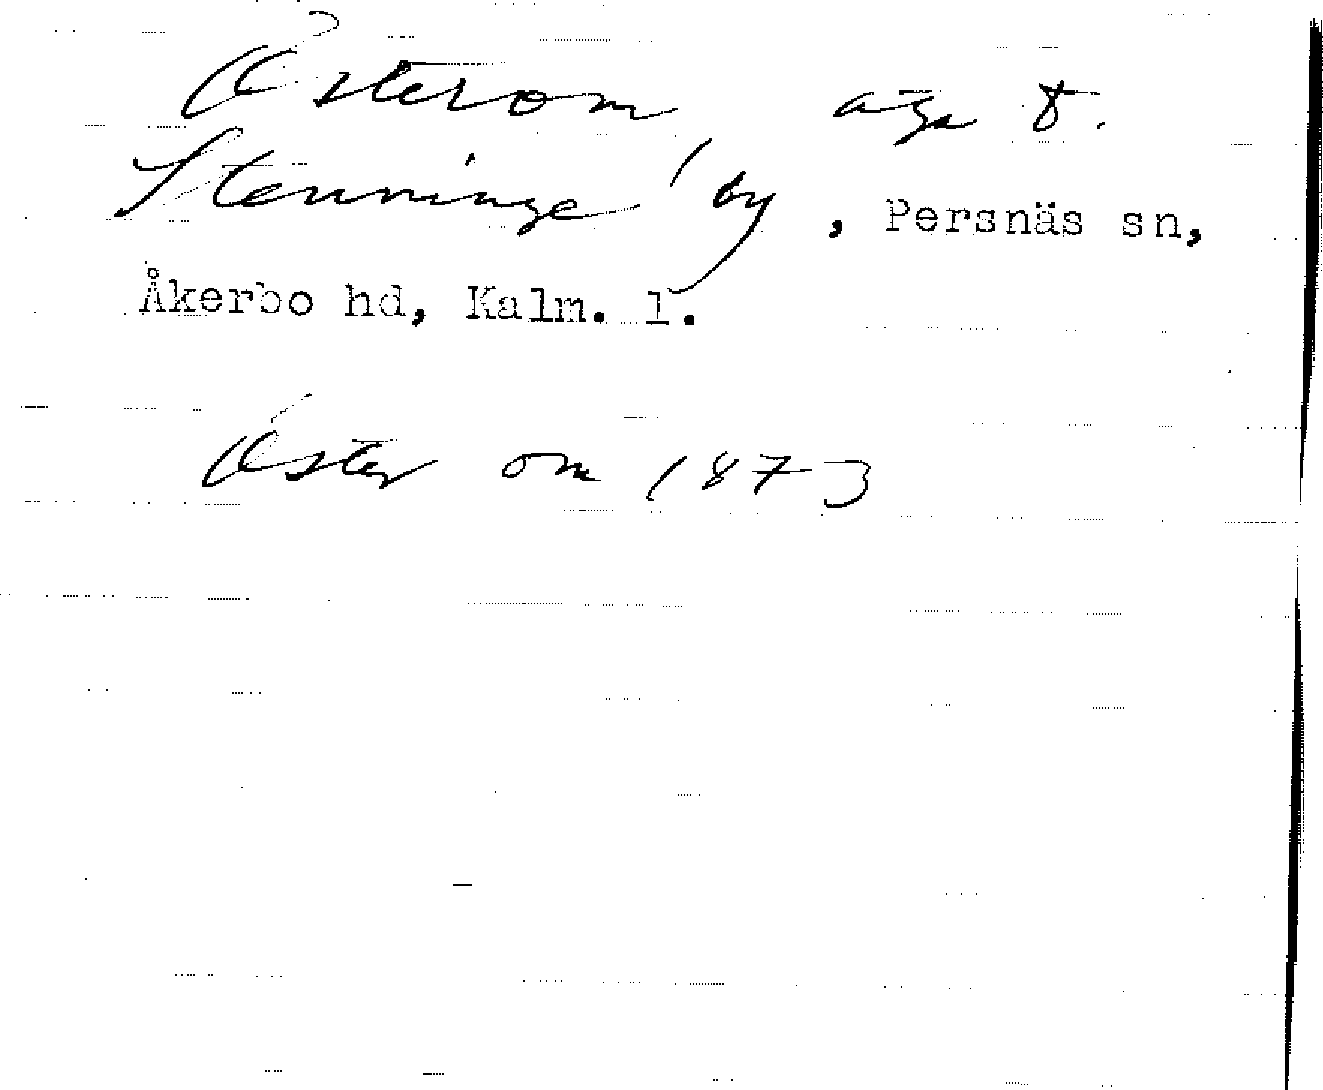 Österom, äga t.
Stenninge by, Persnäs sn,
Åkerbo hd, Kalm. l.
Öster om 1873